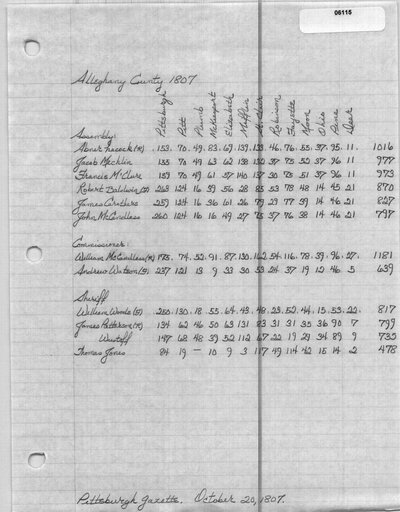 06115
Alleghany County 1807
Pittsburgh Pitt Plumb McKeesport Elizabeth Mifflin St. Clair Robinson Fayette Moon Ohio Pine Deer
Assembly:
Abner Leacock (R) 153. 70. 49. 83. 69. 139. 139. 46. 76. 55. 37. 95. 11. 1016
Jacob Mechlin 135 70 49 63 62 138 132 37 75 52 37 96 11 977
Francis McClure 139 70 49 61 57 140 137 30 75 51 37 96 11 973
Robert Baldwin (F) 268 124 16 39 56 28 85 53 78 48 14 45 21 870
James Caruthers 259 124 16 36 61 26 79 29 77 39 14 46 21 827
John McCandless 260 124 16 16 49 27 75 37 76 38 14 46 21 797
Commissioner:
William McCandless (R) 175. 74. 52. 91. 87. 130. 162. 54. 116. 78. 39. 96. 27. 1181
Andrew Watson (F) 237 121 13 9 33 30 53 24 37 19 12 46 5 639
Sheriff
William Woods (F) 250. 130. 18. 55. 64. 43. 48. 23. 52. 44. 15. 53. 22. 817
James Patterson (R) 134 62 46 50 63 131 83 31 31 35 36 90 7 799
Wustoff 147 68 48 39 52 112 67 22 19 29 34 89 9 735
Thomas Jones 84 19 — 10 9 3 117 49 114 42 15 14 2 478
Pittsburgh Gazette. October 20, 1807.